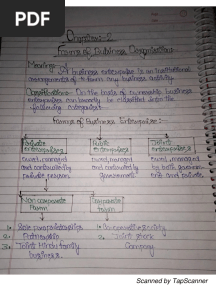 PDF
Chapter-2
Forms of Business Organisations
Meaning :- A business enterprise is an institutional
arrangements of form any business activity.
Classification:- On the basis of ownership business
enterprises can broadly be classified into the
following categories:
Forms of Business Enterprise:-
Private Enterprises
Public Enterprises
Joint Enterprises
owned, managed and controlled by private person
owned, managed and controlled by government.
owned, managed by both government and private.
Non corporate Form
Corporate Form
1• Sole proprietorship
2• Partnership
3• Joint Hindu family business.
1• Co-operative society
2• Joint Stock Company
Scanned by TapScanner